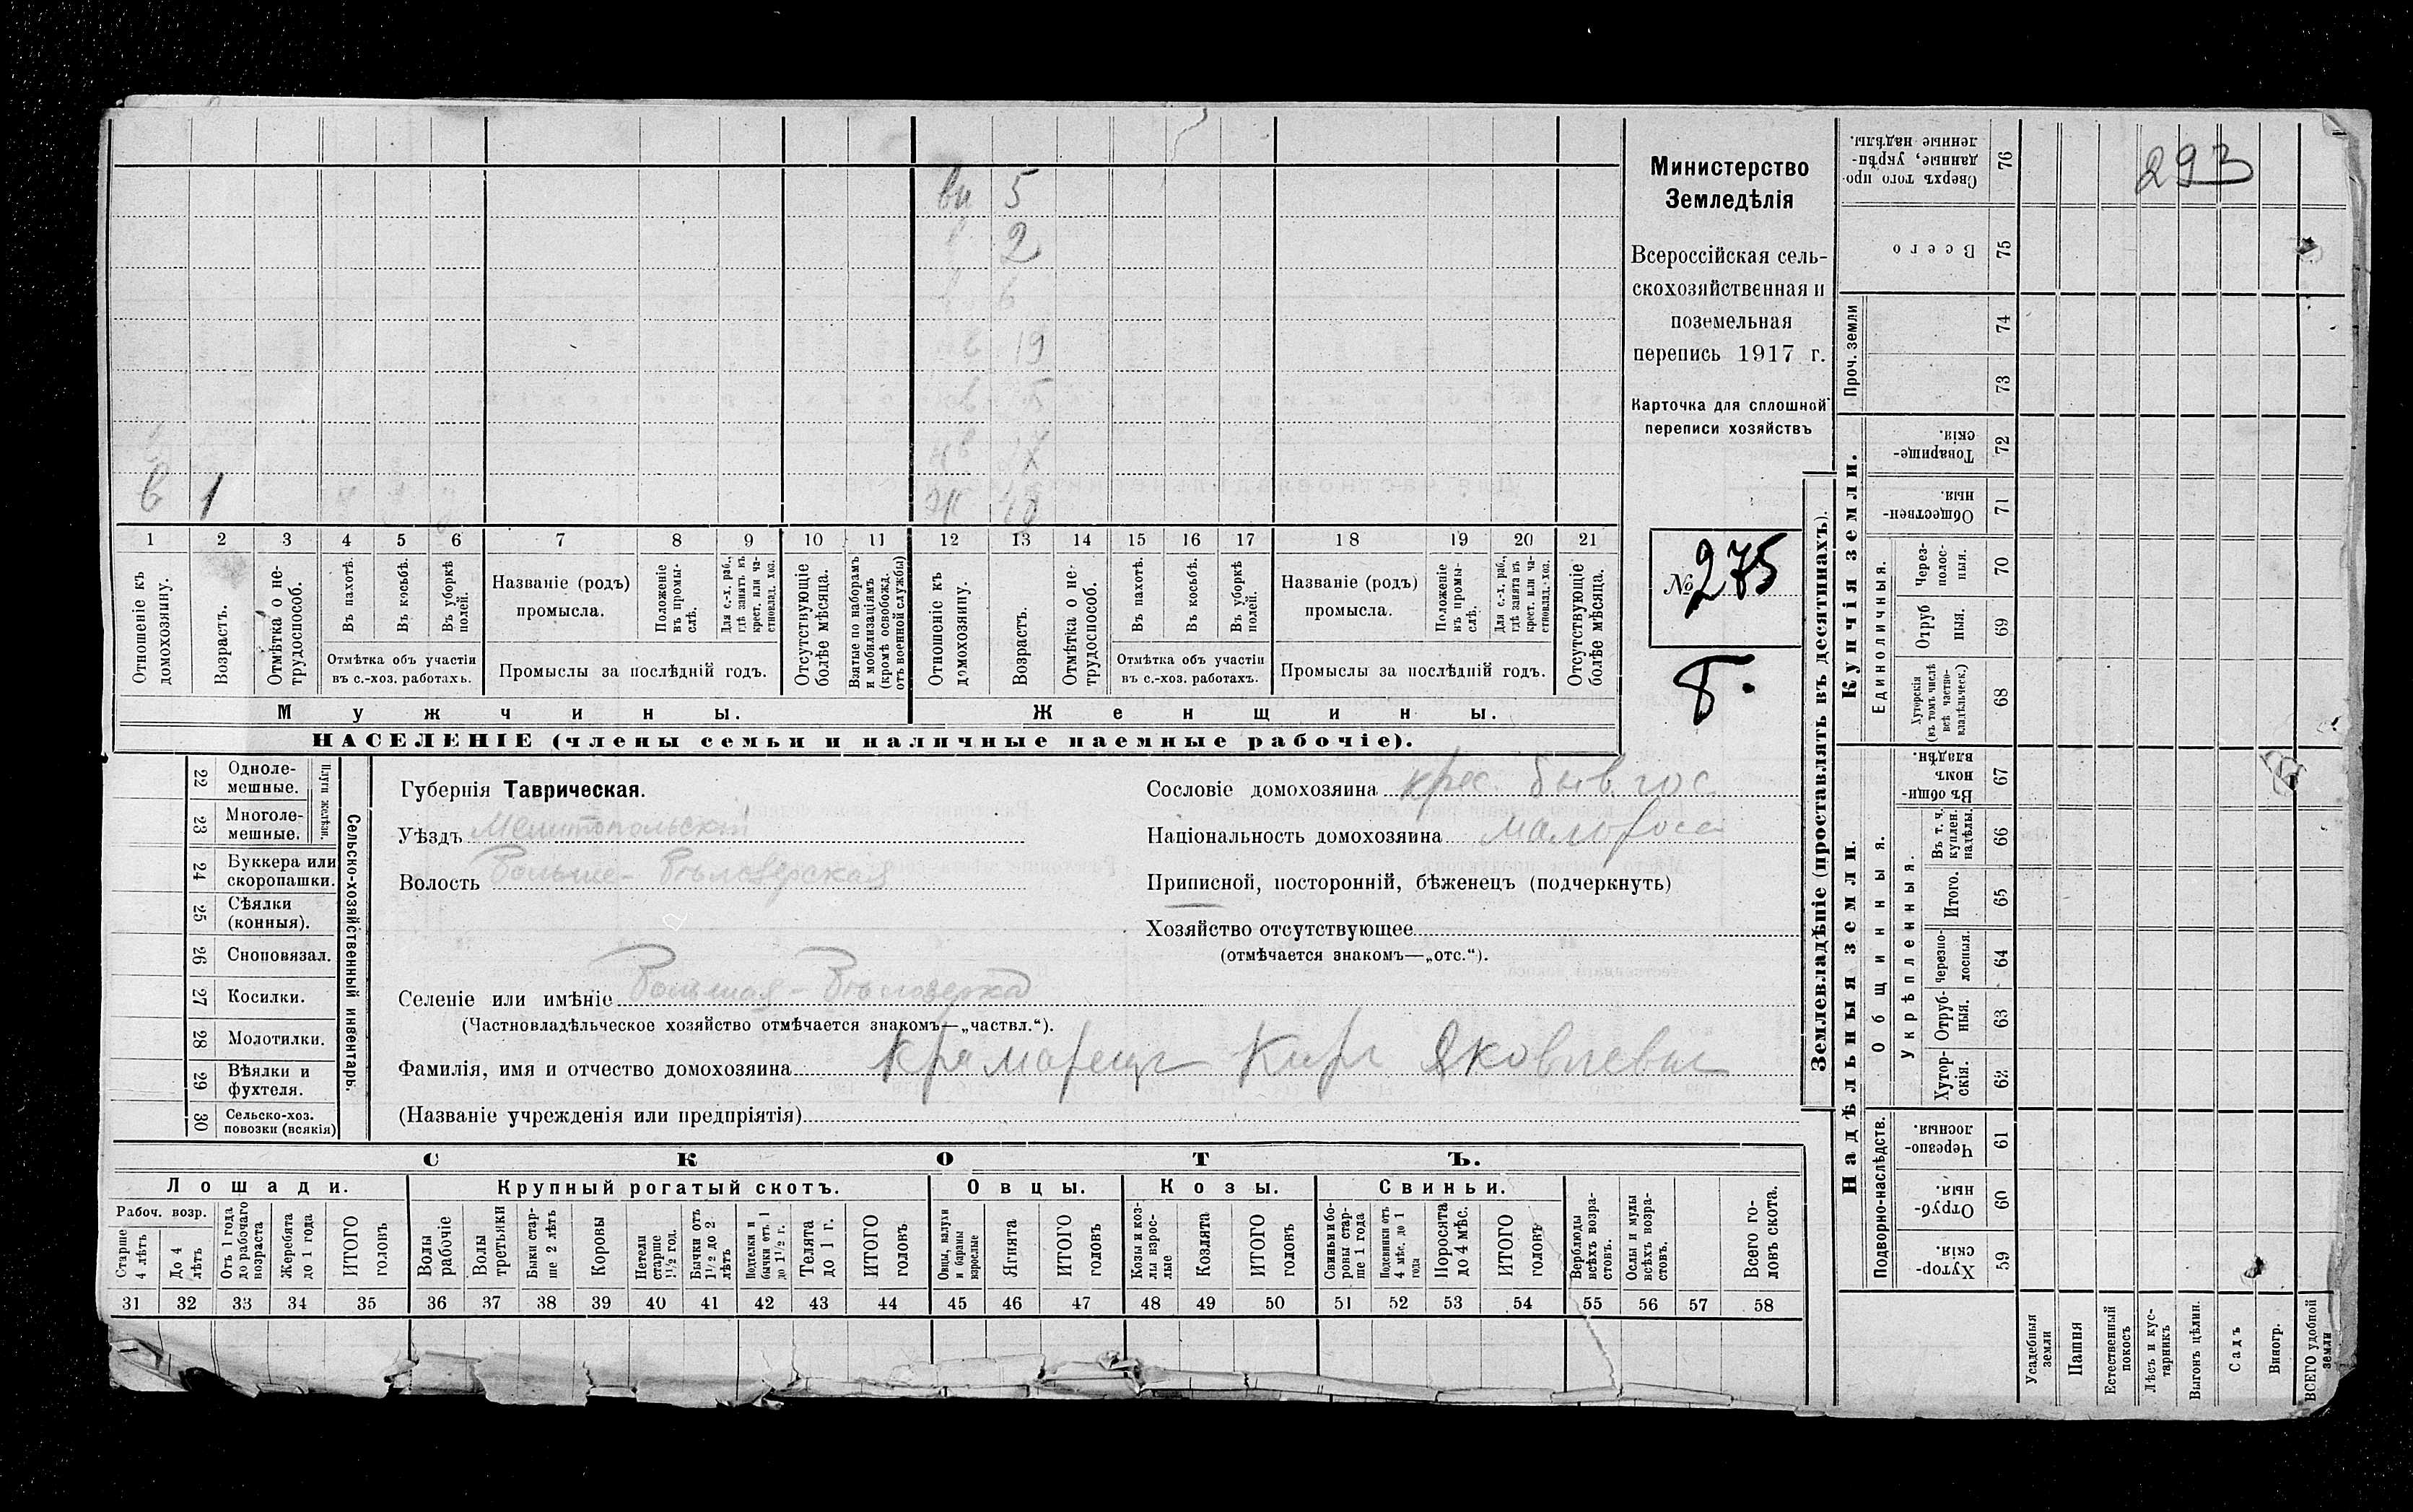 293
вн 5
2
в 6
нв 19
в 5
в 1
1 2 3 4 5 6 7 8 9 10 11 12 13 14 15 16 17 18 19 20 21
Отношеніе къ домохозяину.
Возрастъ.
Отмѣтка о нетрудоспособ.
Въ пахотѣ.
Въ косьбѣ.
Въ уборкѣ полей.
Отмѣтка объ участіи
въ с.-хоз. работахъ.
Названіе (родъ)
промысла.
Положеніе въ промы-
слѣ.
Для с.-х. раб.,
гдѣ занятъ въ
крест. или ча-
стновлад. хоз.
Промыслы за послѣдній годъ.
Отсутствующіе
болѣе мѣсяца.
Взятые по наборамъ
и мобилизаціямъ
(кромѣ освобожд.
отъ военной службы)
Отношеніе къ
домохозяину.
Возрастъ.
Отмѣтка о не-
трудоспособ.
Въ пахотѣ.
Въ косьбѣ.
Въ уборкѣ
полей.
Отмѣтка объ участіи
въ с.-хоз. работахъ.
Названіе (родъ)
промысла.
Положеніе
въ промы-
слѣ.
Для с.-х. раб.,
гдѣ занята въ
крест. или ча-
стновлад. хоз.
Промыслы за послѣдній годъ.
Отсутствующіе
болѣе мѣсяца.
Мужчины.
Женщины.
НАСЕЛЕНІЕ (члены семьи и наличные наемные рабочіе).
Министерство
Земледѣлія
Всероссійская сель-
скохозяйственная и
поземельная
перепись 1917 г.
Карточка для сплошной
переписи хозяйствъ
№ 275
Б.
22 Одноле-
мешные.
23 Многоле-
мешные.
Плуги желѣзн.
24 Буккера или
скоропашки.
25 Сѣялки
(конныя).
26 Сноповязал.
27 Косилки.
28 Молотилки.
29 Вѣялки и
фухтеля.
30 Сельско-хоз.
повозки (всякія)
Сельско-хозяйственный инвентарь.
Губернія Таврическая.
Уѣздъ Мелитопольскій
Волость Больше-Бѣлозерская
Селеніе или имѣніе Большая-Бѣлозерка
(Частновладѣльческое хозяйство отмѣчается знакомъ—„частвл.“).
Фамилія, имя и отчество домохозяина Крамарецъ Киръ Яковлевъ
(Названіе учрежденія или предпріятія)
Сословіе домохозяина крес. бывъ гос
Національность домохозяина малоросс
Приписной, посторонній, бѣженецъ (подчеркнуть)
Хозяйство отсутствующее
(отмѣчается знакомъ—„отс.“).
СКОТЪ.
Лошади. Крупный рогатый скотъ. Овцы. Козы. Свиньи.
Рабоч. возр.
Старше
4 лѣтъ
До 4
лѣтъ
Отъ 1 года
до рабочаго
возраста
Жеребята
до 1 года
ИТОГО
головъ
Волы
рабочіе
Волы
третьяки
Быки стар-
ше 2 лѣтъ
Коровы
Нетели
старше
1½ год.
Бычки отъ
1½ до 2
лѣтъ
Подтелки и
бычки отъ 1
до 1½ г.
Телята
до 1 г.
ИТОГО
головъ
Овцы, валухи
и бараны
взрослые
Ягнята
ИТОГО
головъ
Козы и коз-
лы взрос-
лые
Козлята
ИТОГО
головъ
Свиньи и бо-
ровы стар-
ше 1 года
Подсвинки отъ
4 мѣс. до 1
года
Поросята
до 4 мѣс.
ИТОГО
головъ
Верблюды
всѣхъ возра-
стовъ.
Ослы и мулы
всѣхъ возра-
стовъ.
Всего го-
ловъ скота.
31 32 33 34 35 36 37 38 39 40 41 42 43 44 45 46 47 48 49 50 51 52 53 54 55 56 57 58
Землевладѣніе (проставлять въ десятинахъ).
Купчія земли.
Надѣльныя земли.
Проч. земли
Единоличныя.
Общинныя.
Укрѣпленныя.
Подворно-наслѣдств.
76 Сверхъ того про-
данные, укрѣп-
ленные надѣлы.
75 Всего
74
73
72 Товарище-
скія.
71 Обществен-
ныя.
70 Через-
полос-
ныя.
69 Отруб
ныя.
68 Хуторскія
(въ томъ числѣ
всѣ частно-
владѣльческ.)
67 Въ общи-
номъ
владѣн.
66 Въ т. ч.
куплен.
надѣлы.
65 Итого.
64 Черезпо-
лосныя.
63 Отруб-
ныя.
62 Хутор-
скія.
61 Черезпо-
лосныя.
60 Отруб-
ныя.
59 Хутор-
скія.
Усадебныя
земли
Пашня
Естественный
покосъ
Лѣсъ и кус-
тарникъ
Выгонъ цѣлин.
Садъ
Виногр.
ВСЕГО удобной
земли